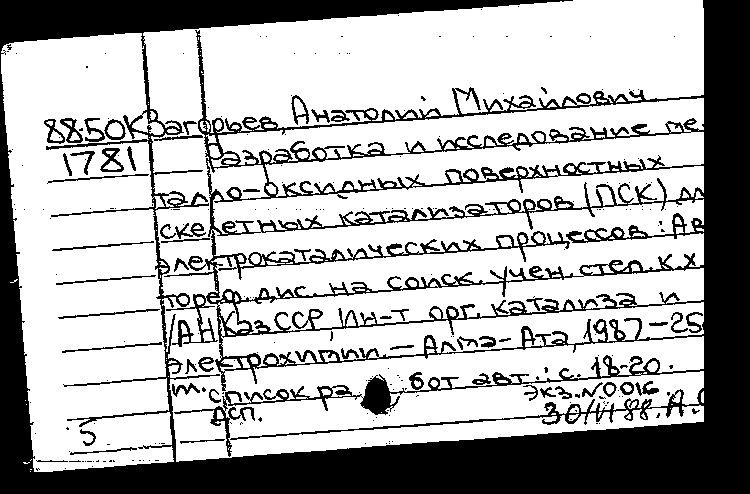 88.50К Загорьев, Анатолий Михайлович
1781 Разработка и исследование ме-
талло-оксидных поверхностных
скелетных катализаторов (ПСК) дл
электрокаталических процессов: Ав
тореф. дис. на соиск. учен. степ. к.х.
/АН КазССР, Ин-т орг. катализа и
электрохимии. — Алма-Ата, 1987. — 25
т. список ра бот авт.: с. 18-20.
Асп. экз. N0016
5 30/VI 88. А.